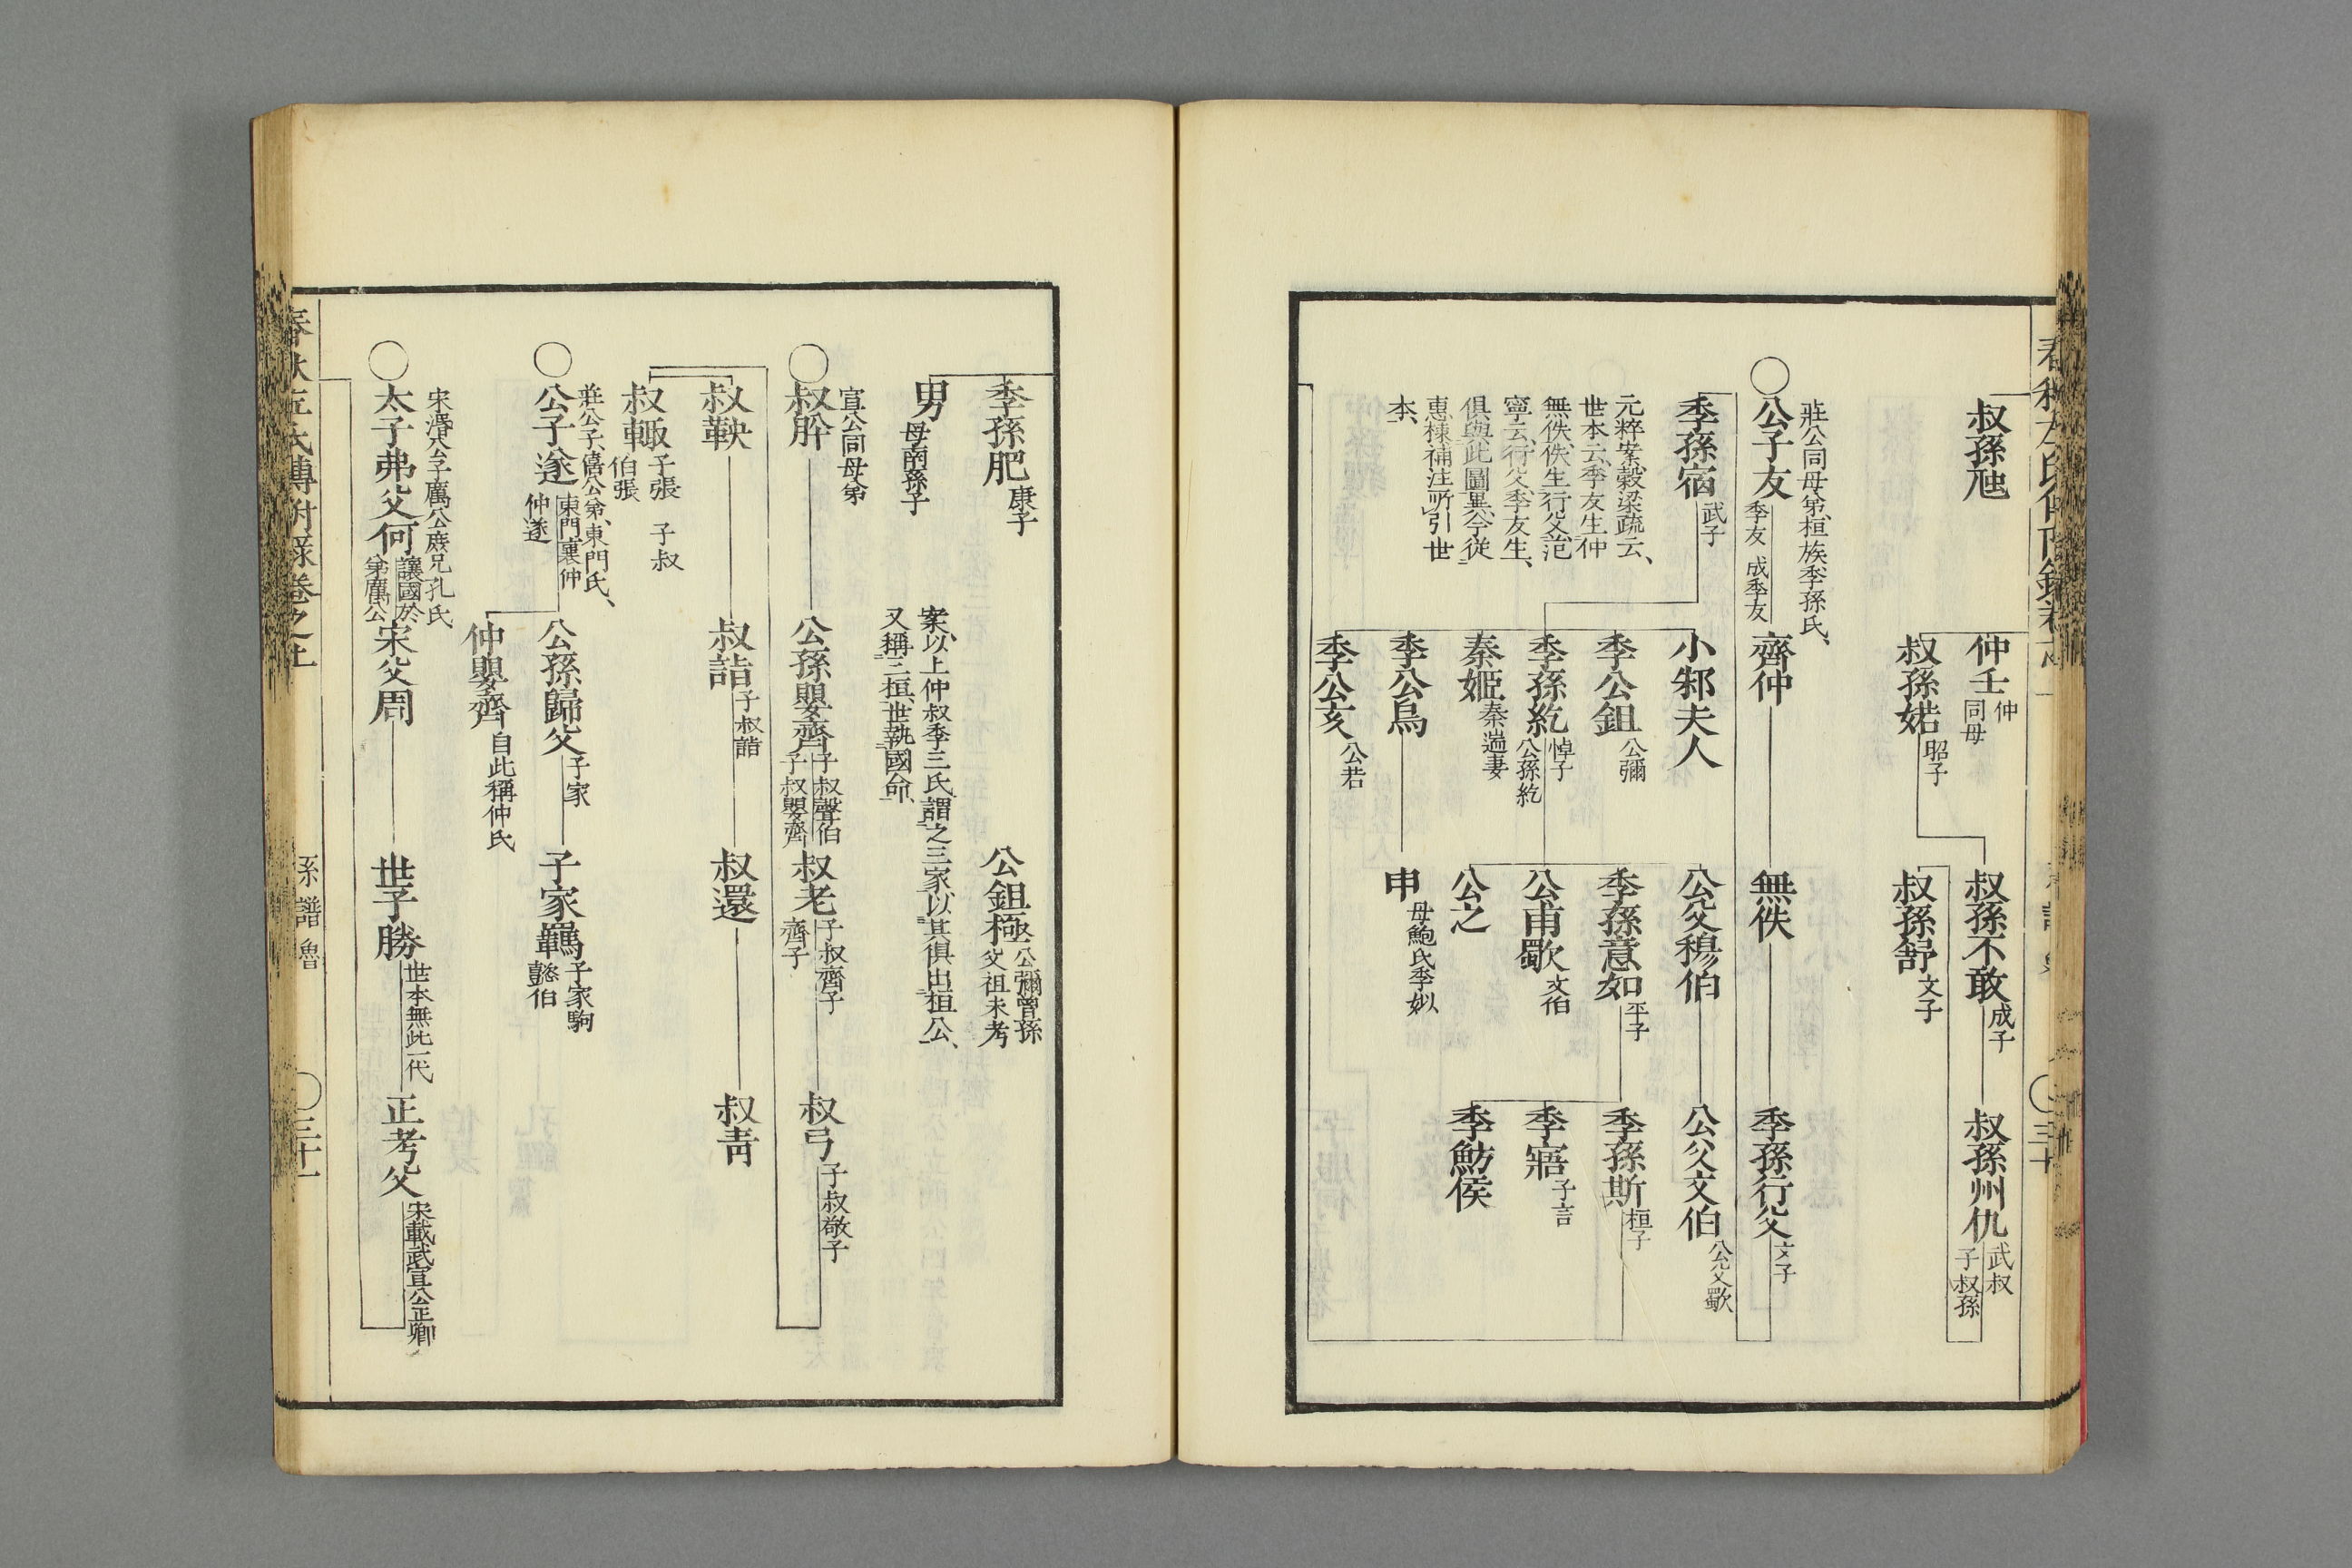 叔孫虺
仲壬 仲同母
叔孫婼 昭子
叔孫不敢 成子
叔孫舒 文子
叔孫州仇 武叔 子叔孫
莊公同母弟、桓族、季孫氏、
公子友 季友 成季友
齊仲
無佚
季孫行父 文子
季孫宿 武子
元粹案、穀梁疏云、
世本云、季友生仲
無佚、佚生行父、范
寧云、行父、季友生、
俱與此圖異、今從
惠棟補注所引世
本、
小邾夫人
季公鉏 公彌
季孫紇 悼子 公孫紇
秦姬 秦遄妻
季公烏
季公亥 公若
公父穆伯
季孫意如 平子
公甫歜 文伯
公之
申 母鮑氏季姒
公父文伯 公父歜
季孫斯 桓子
季寤 子言
季魴侯
三十
季孫肥 康子
公鉏極 公彌曾孫 父祖未考
男 母南孺子
案、以上仲叔季三氏、謂之三家、以其俱出桓公、
又稱三桓、世執國命、
宣公同母弟
叔肸
公孫嬰齊 子叔聲伯 子叔嬰齊
叔老 子叔齊子 齊子
叔弓 子叔敬子
叔鞅
叔詣 子叔詣
叔還
叔靑
叔輒 子張 子叔 伯張
莊公子、僖公弟、東門氏、
公子遂 東門襄仲 仲遂
公孫歸父 子家
子家羈 子家駒 懿伯
仲嬰齊 自此稱仲氏
宋湣公子、厲公庶兄、孔氏
太子弗父何 讓國於弟厲公
宋父周
世子勝 世本無此一代
正考父 宋載武宣公正卿
春秋左氏傳附錄卷之上
系譜 魯
三十一